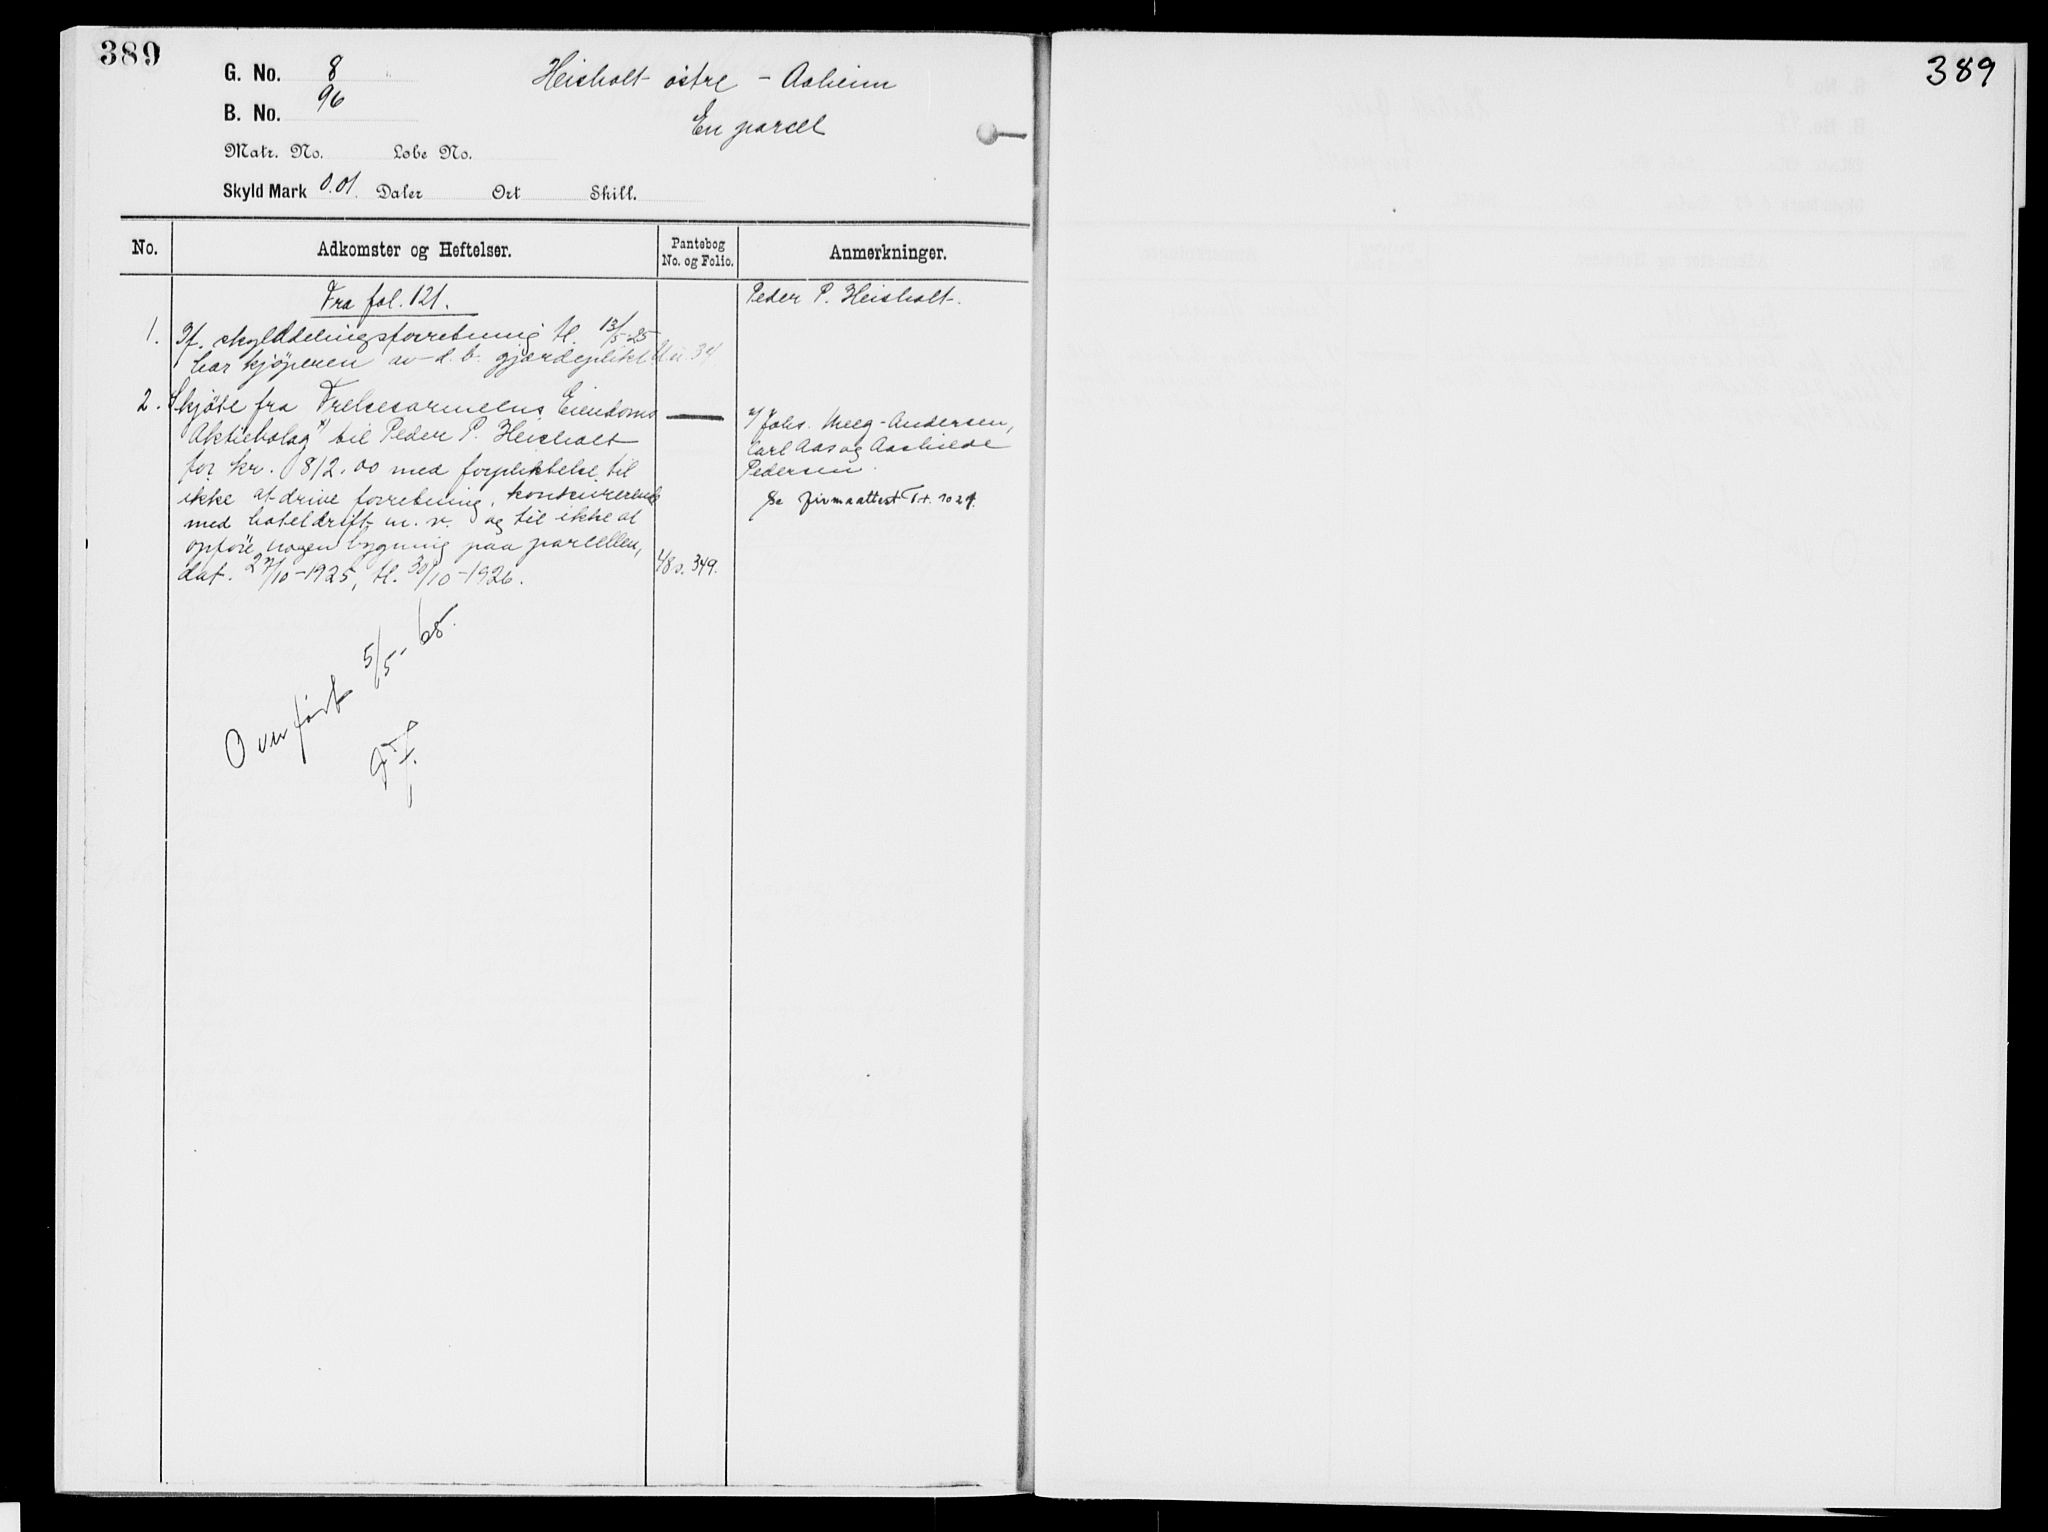 389
G. No. 8
Heisholt østre - Aaheim
B. No. 96
En parcel
Matr. No. Løbe No.
Skyld Mark 0.01 Daler Ort Skill.
No. Adkomster og Heftelser. Pantebog No. og Folio. Anmerkninger.
Fra fol. 121.
Peder P. Heisholt.
1. If. skylddelingsforretning tl. 13/5-25
har kjøperen av d. b. gjærdeplikt 34
2. Skjøte fra Frelsesarmeens Eiendoms
Aktiebolag x) til Peder P. Heisholt
for kr. 812.00 med forpliktelse til
ikke at drive forretning, konkurrerende
med hoteldrift m. v. og til ikke at
opføre nogen bygning paa parcellen,
dat. 27/10-1925, tl. 30/10-1926.
48 s. 349.
x) Johs. Meeg-Andersen,
Carl Aas og Aashilde
Pedersen.
Se firmaattest
Overført 5/5-65.
389